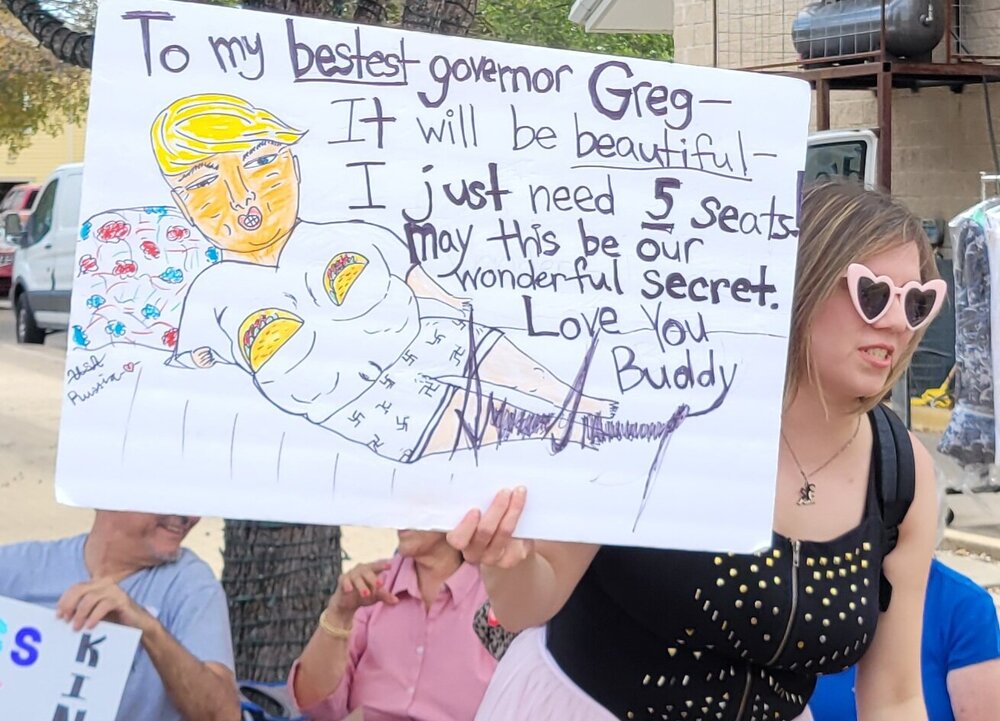 To my bestest governor Greg-
It will be beautiful-
I just need 5 seats.
May this be our
wonderful secret.
Love You
Buddy
USA
Russia
S
KIN